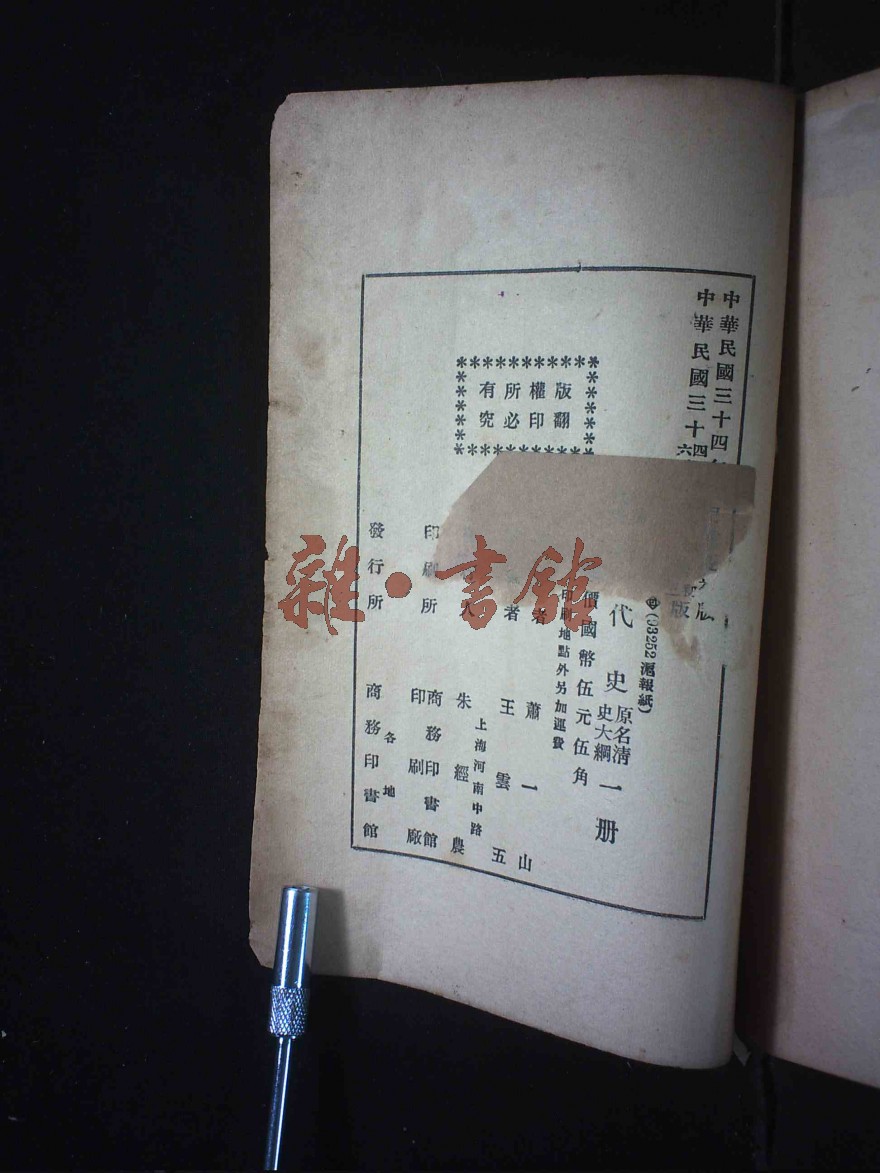 中華民國三十四
中華民國三十六四
版
版
(93252滬報紙)
代史 原名清史大綱 一册
價國幣伍元伍角
印刷地點外另加運費
版權所有
翻印必究
者 蕭一山
者 王雲五
人 朱經農
上海河南中路
印刷所 商務印書館印刷廠
發行所 各地 商務印書館
雜·書館